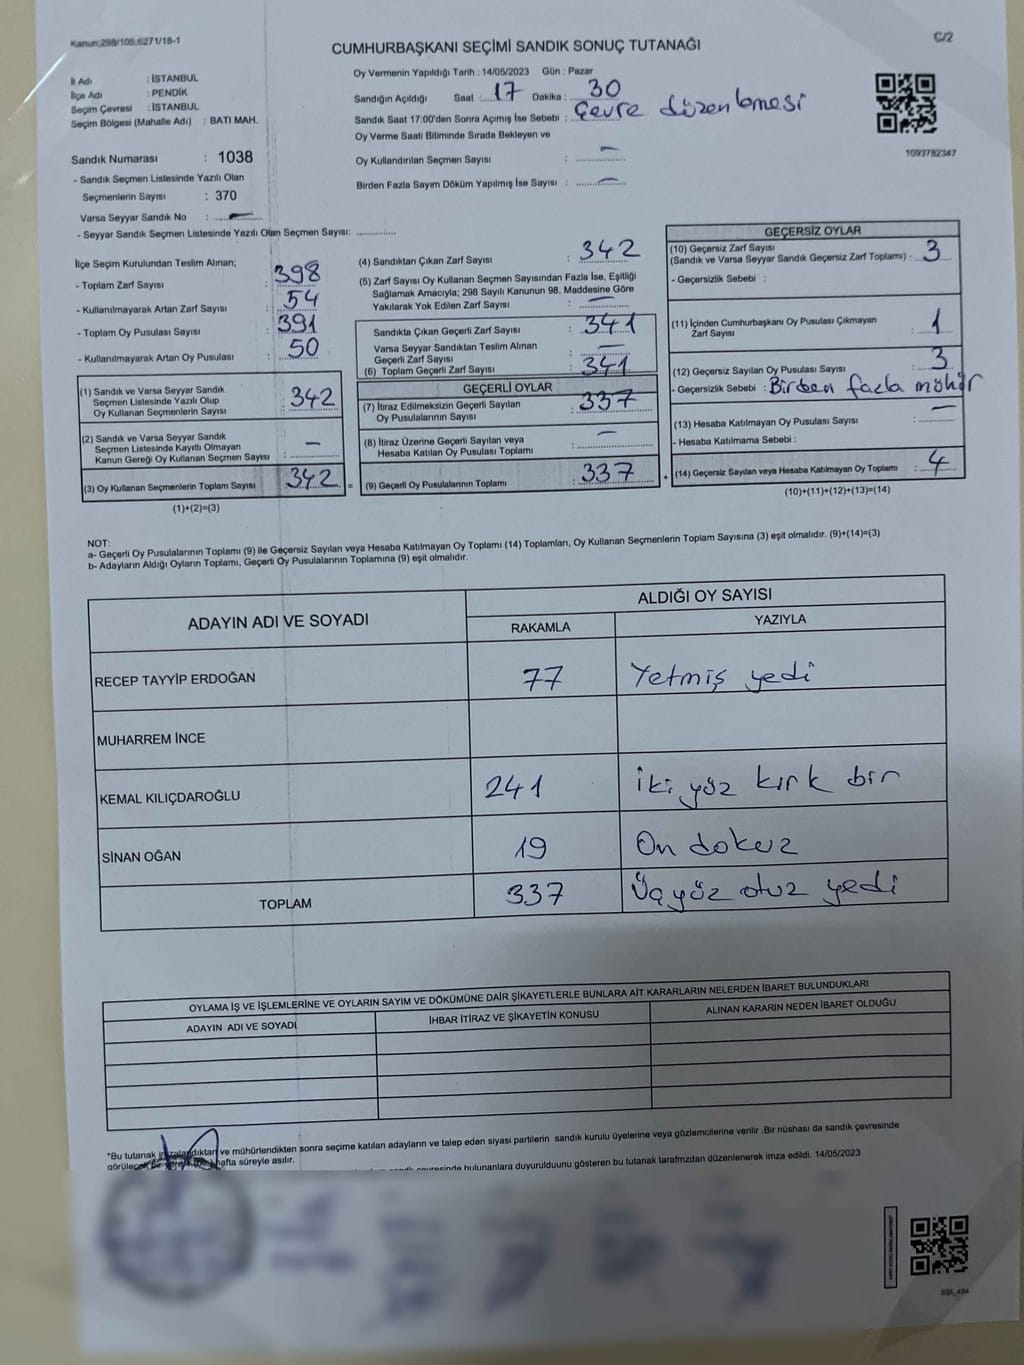 Kanun;298/105;6271/18-1
CUMHURBAŞKANI SEÇİMİ SANDIK SONUÇ TUTANAĞI
C/2
İl Adı : İSTANBUL
İlçe Adı : PENDİK
Seçim Çevresi : İSTANBUL
Seçim Bölgesi (Mahalle Adı) : BATI MAH.
Sandık Numarası : 1038
- Sandık Seçmen Listesinde Yazılı Olan
Seçmenlerin Sayısı : 370
Varsa Seyyar Sandık No : —
- Seyyar Sandık Seçmen Listesinde Yazılı Olan Seçmen Sayısı: ..............
Oy Vermenin Yapıldığı Tarih : 14/05/2023 Gün : Pazar
Sandığın Açıldığı Saat : 17 Dakika : 30
Sandık Saat 17:00'den Sonra Açımış İse Sebebi : Çevre düzenlemesi
Oy Verme Saati Bitiminde Sırada Bekleyen ve
Oy Kullandırılan Seçmen Sayısı : —
Birden Fazla Sayım Döküm Yapılmış İse Sayısı : —
1093782347
İlçe Seçim Kurulundan Teslim Alınan;
- Toplam Zarf Sayısı : 398
- Kullanılmayarak Artan Zarf Sayısı : 54
- Toplam Oy Pusulası Sayısı : 391
- Kullanılmayarak Artan Oy Pusulası : 50
(1) Sandık ve Varsa Seyyar Sandık
Seçmen Listesinde Yazılı Olup
Oy Kullanan Seçmenlerin Sayısı : 342
(2) Sandık ve Varsa Seyyar Sandık
Seçmen Listesinde Kayıtlı Olmayan
Kanun Gereği Oy Kullanan Seçmen Sayısı : —
(3) Oy Kullanan Seçmenlerin Toplam Sayısı : 342 =
(1)+(2)=(3)
(4) Sandıktan Çıkan Zarf Sayısı : 342
(5) Zarf Sayısı Oy Kullanan Seçmen Sayısından Fazla İse, Eşitliği
Sağlamak Amacıyla; 298 Sayılı Kanunun 98. Maddesine Göre
Yakılarak Yok Edilen Zarf Sayısı : —
Sandıkta Çıkan Geçerli Zarf Sayısı : 341
Varsa Seyyar Sandıktan Teslim Alınan
Geçerli Zarf Sayısı : —
(6) Toplam Geçerli Zarf Sayısı : 341
GEÇERLİ OYLAR
(7) İtiraz Edilmeksizin Geçerli Sayılan
Oy Pusulalarının Sayısı : 337
(8) İtiraz Üzerine Geçerli Sayılan veya
Hesaba Katılan Oy Pusulası Toplamı : —
(9) Geçerli Oy Pusulalarının Toplamı : 337 +
GEÇERSİZ OYLAR
(10) Geçersiz Zarf Sayısı
(Sandık ve Varsa Seyyar Sandık Geçersiz Zarf Toplamı) : 3
- Geçersizlik Sebebi :
(11) İçinden Cumhurbaşkanı Oy Pusulası Çıkmayan
Zarf Sayısı : 1
(12) Geçersiz Sayılan Oy Pusulası Sayısı : 3
- Geçersizlik Sebebi : Birden fazla mühür
(13) Hesaba Katılmayan Oy Pusulası Sayısı : —
- Hesaba Katılmama Sebebi :
(14) Geçersiz Sayılan veya Hesaba Katılmayan Oy Toplamı : 4
(10)+(11)+(12)+(13)=(14)
NOT:
a- Geçerli Oy Pusulalarının Toplamı (9) ile Geçersiz Sayılan veya Hesaba Katılmayan Oy Toplamı (14) Toplamları, Oy Kullanan Seçmenlerin Toplam Sayısına (3) eşit olmalıdır. (9)+(14)=(3)
b- Adayların Aldığı Oyların Toplamı, Geçerli Oy Pusulalarının Toplamına (9) eşit olmalıdır.
ADAYIN ADI VE SOYADI
ALDIĞI OY SAYISI
RAKAMLA YAZIYLA
RECEP TAYYİP ERDOĞAN 77 Yetmiş yedi
MUHARREM İNCE
KEMAL KILIÇDAROĞLU 241 iki yüz kırk bir
SİNAN OĞAN 19 On dokuz
TOPLAM 337 Üçyüz otuz yedi
OYLAMA İŞ VE İŞLEMLERİNE VE OYLARIN SAYIM VE DÖKÜMÜNE DAİR ŞİKAYETLERLE BUNLARA AİT KARARLARIN NELERDEN İBARET BULUNDUKLARI
ADAYIN ADI VE SOYADI İHBAR İTİRAZ VE ŞİKAYETİN KONUSU ALINAN KARARIN NEDEN İBARET OLDUĞU
*Bu tutanak imzalandıktan ve mühürlendikten sonra seçime katılan adayların ve talep eden siyasi partilerin sandık kurulu üyelerine veya gözlemcilerine verilir .Bir nüshası da sandık çevresinde
görülecek bir yere 1 hafta süreyle asılır.
sandık çevresinde bulunanlara duyurulduunu gösteren bu tutanak tarafımzdan düzenlenerek imza edildi. 14/05/2023